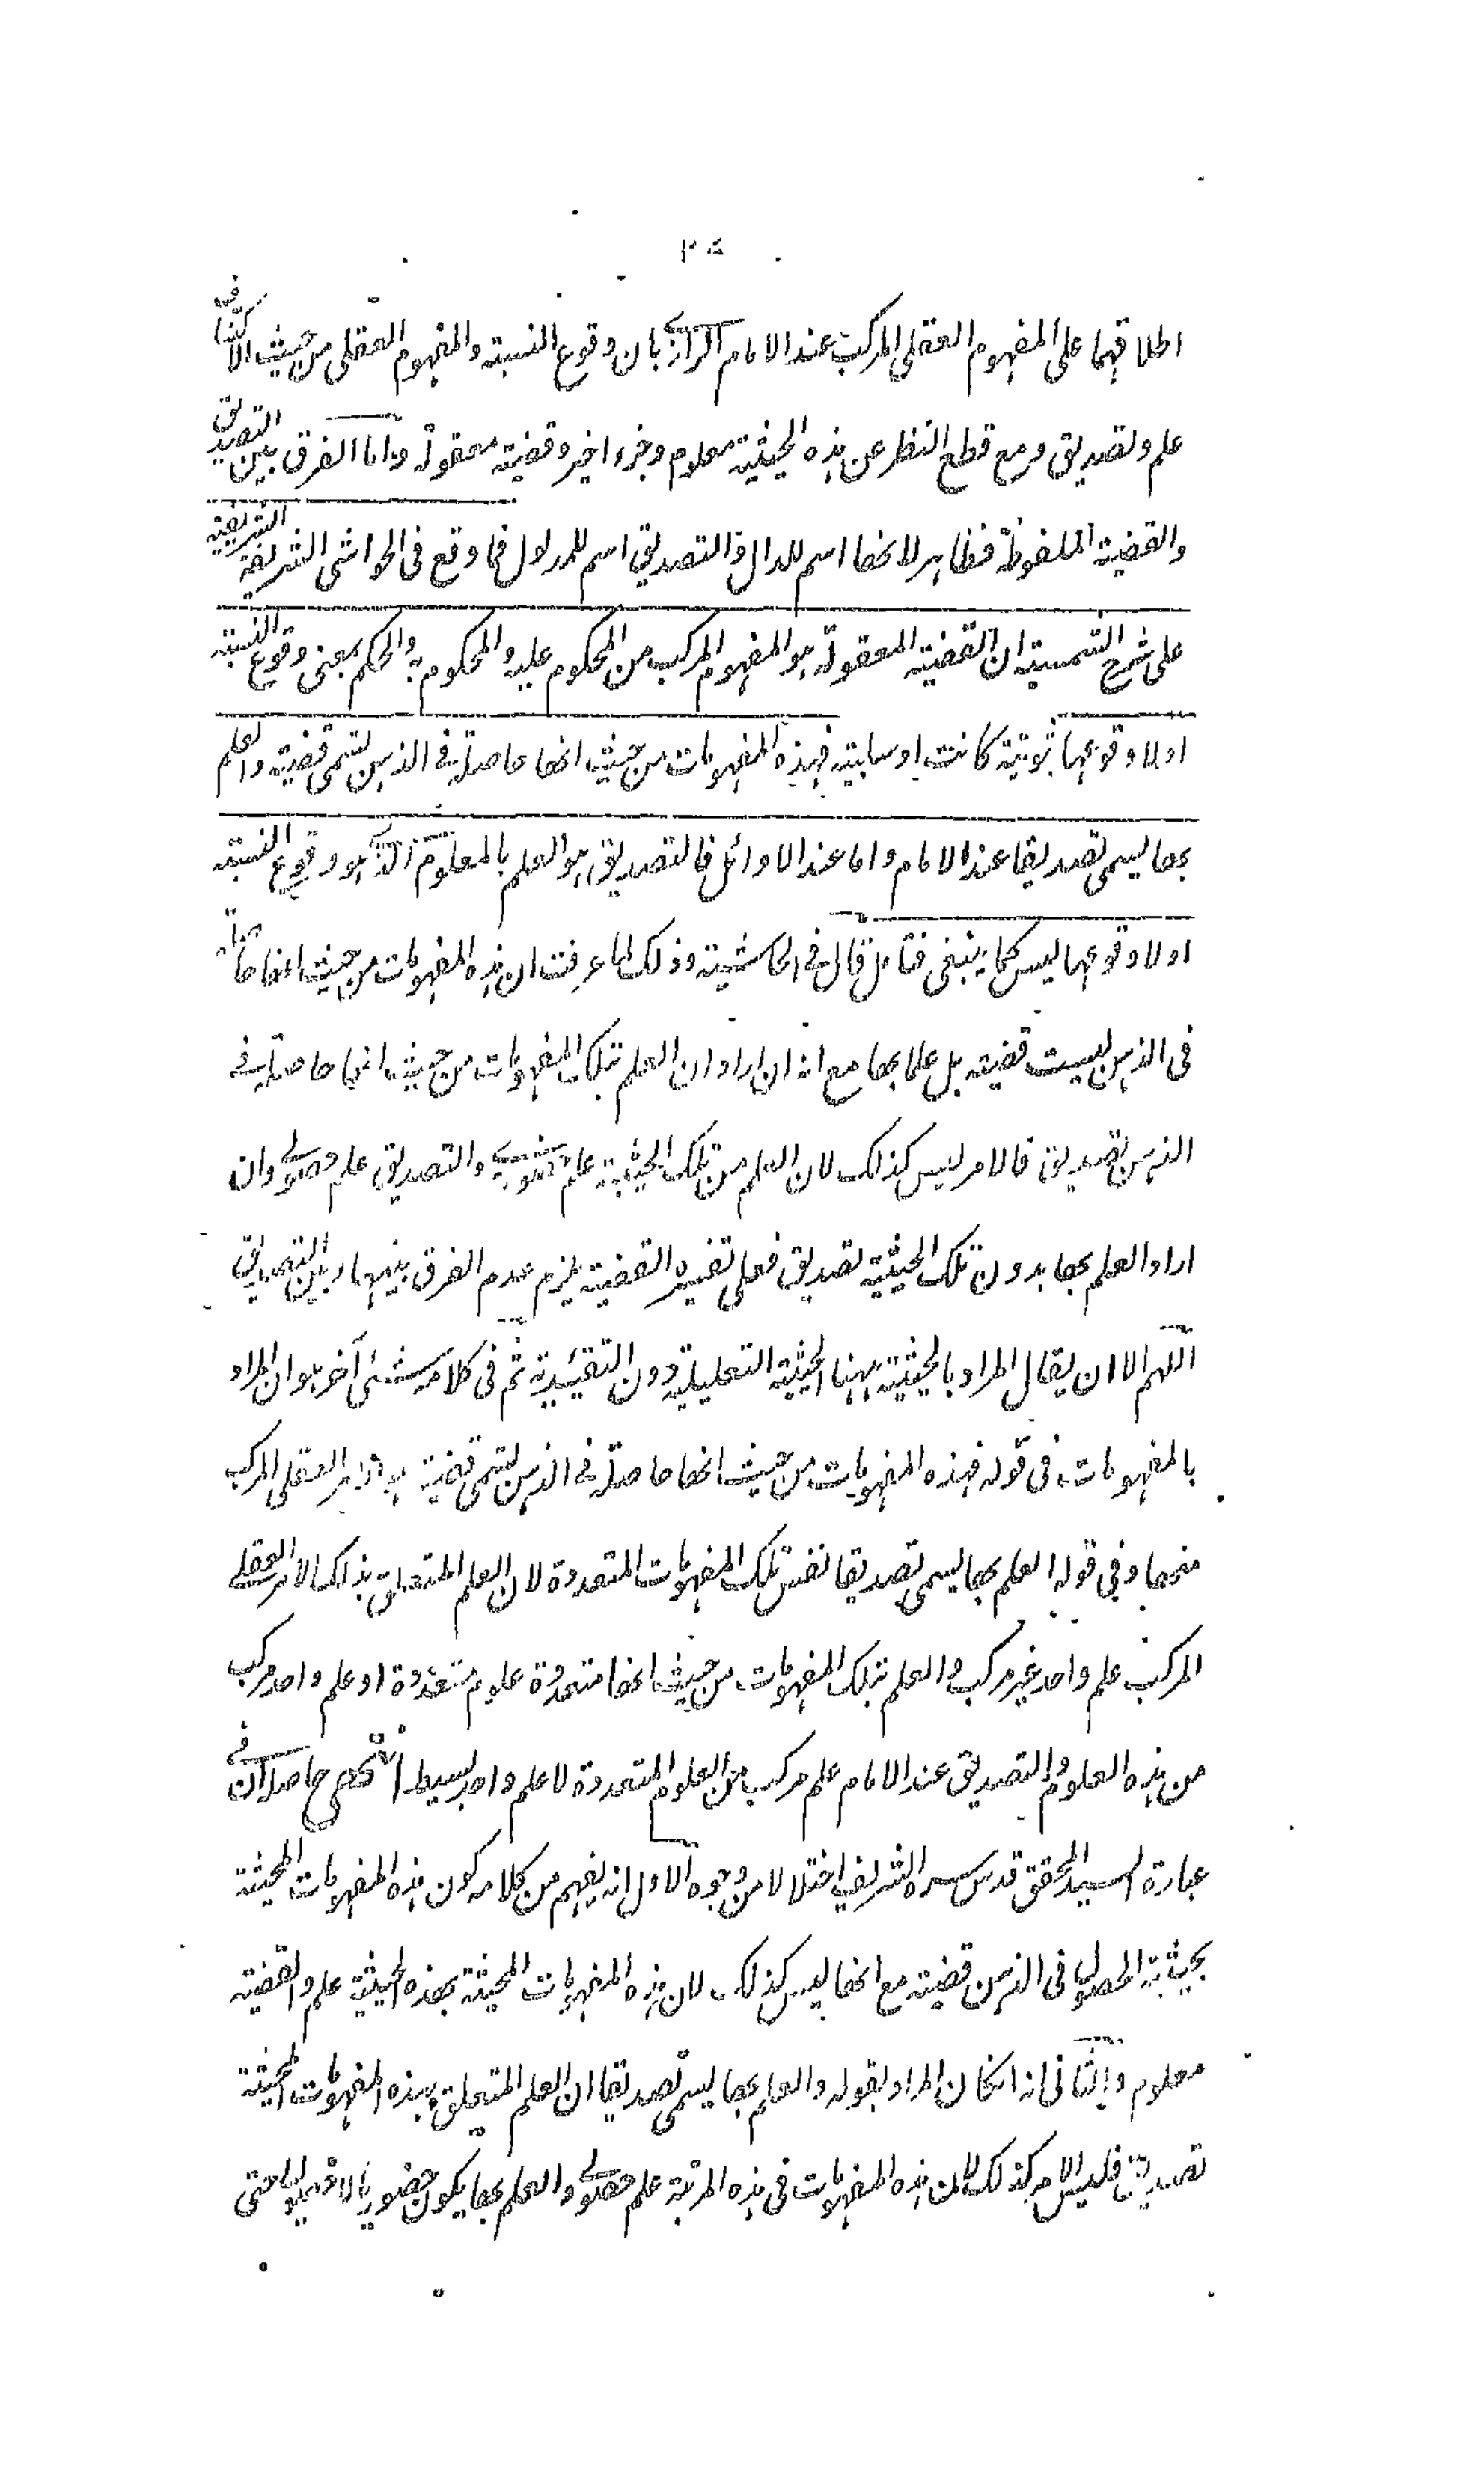 ٣٨
اطلاقهما على المفهوم العقلى المركب عند الامام الرازى بان وقوع النسبة والمفهوم العقلى من حيث الاكتنا فيه
علم وتصديق ومع قطع النظر عن هذه الحيثية معلوم وجزء اخير وقضية معقولة واما الفرق بين التصديق
والقضية الملفوظة فظاهر لانها اسم للدال والتصديق اسم للمدلول فما وقع فى الحواشى الشريفة الشريفية
على شرح الشمسية ان القضية المعقولة هو المفهوم المركب من المحكوم عليه والمحكوم به والحكم بمعنى وقوع النسبة
اولا وقوعها ثبوتية كانت او سلبية فهذه المفهومات من حيث انها حاصلة فى الذهن تسمى قضية والعلم
بها يسمى تصديقا عند الامام واما عند الاوائل فالتصديق هو العلم بالمعلوم الذى هو وقوع النسبة
اولا وقوعها ليس كما ينبغى فتأمل قال فى الحاشية وذلك لما عرفت ان هذه المفهومات من حيث انها حاصلة
فى الذهن ليست قضية بل علما بها مع انه ان اراد ان العلم بتلك المفهومات من حيث انها حاصلة فى
الذهن تصديق فالامر ليس كذلك لان العلم من تلك الحيثية علم حضورى والتصديق علم حصولى وان
اراد العلم بها بدون تلك الحيثية تصديق فعلى تفسيره القضية يلزم عدم الفرق بينهما وبين التصديق
اللهم الا ان يقال المراد بالحيثية ههنا الحيثية التعليلية دون التقييدية ثم فى كلامه شئ آخر هو ان المراد
بالمفهومات فى قوله فهذه المفهومات من حيث انها حاصلة فى الذهن تسمى قضية هو الامر العقلى المركب
منها وفى قوله العلم بها يسمى تصديقا نفس تلك المفهومات المتعددة لان العلم المتعلق بذلك الامر العقلى
المركب علم واحد غير مركب والعلم بتلك المفهومات من حيث انها متعددة علوم متعددة او علم واحد مركب
من هذه العلوم والتصديق عند الامام علم مركب من العلوم المتعددة لا علم واحد بسيط انتهى ح حاصله ان فى
عبارة السيد المحقق قدس سره الشريف اختلالا من وجوه الاول انه يفهم من كلامه كون هذه المفهومات المحيثة
بحيثية الحصول فى الذهن قضية مع انها ليس كذلك لان هذه المفهومات المحيثة بهذه الحيثية علم والقضية
معلوم والثانى انه ان كان المراد بقوله والعلم بها يسمى تصديقا ان العلم المتعلق بهذه المفهومات المحيثة
تصديق فليس الامر كذلك لان هذه المفهومات فى هذه المرتبة علم حصولى والعلم بها يكون حضوريا لا حصوليا حتى